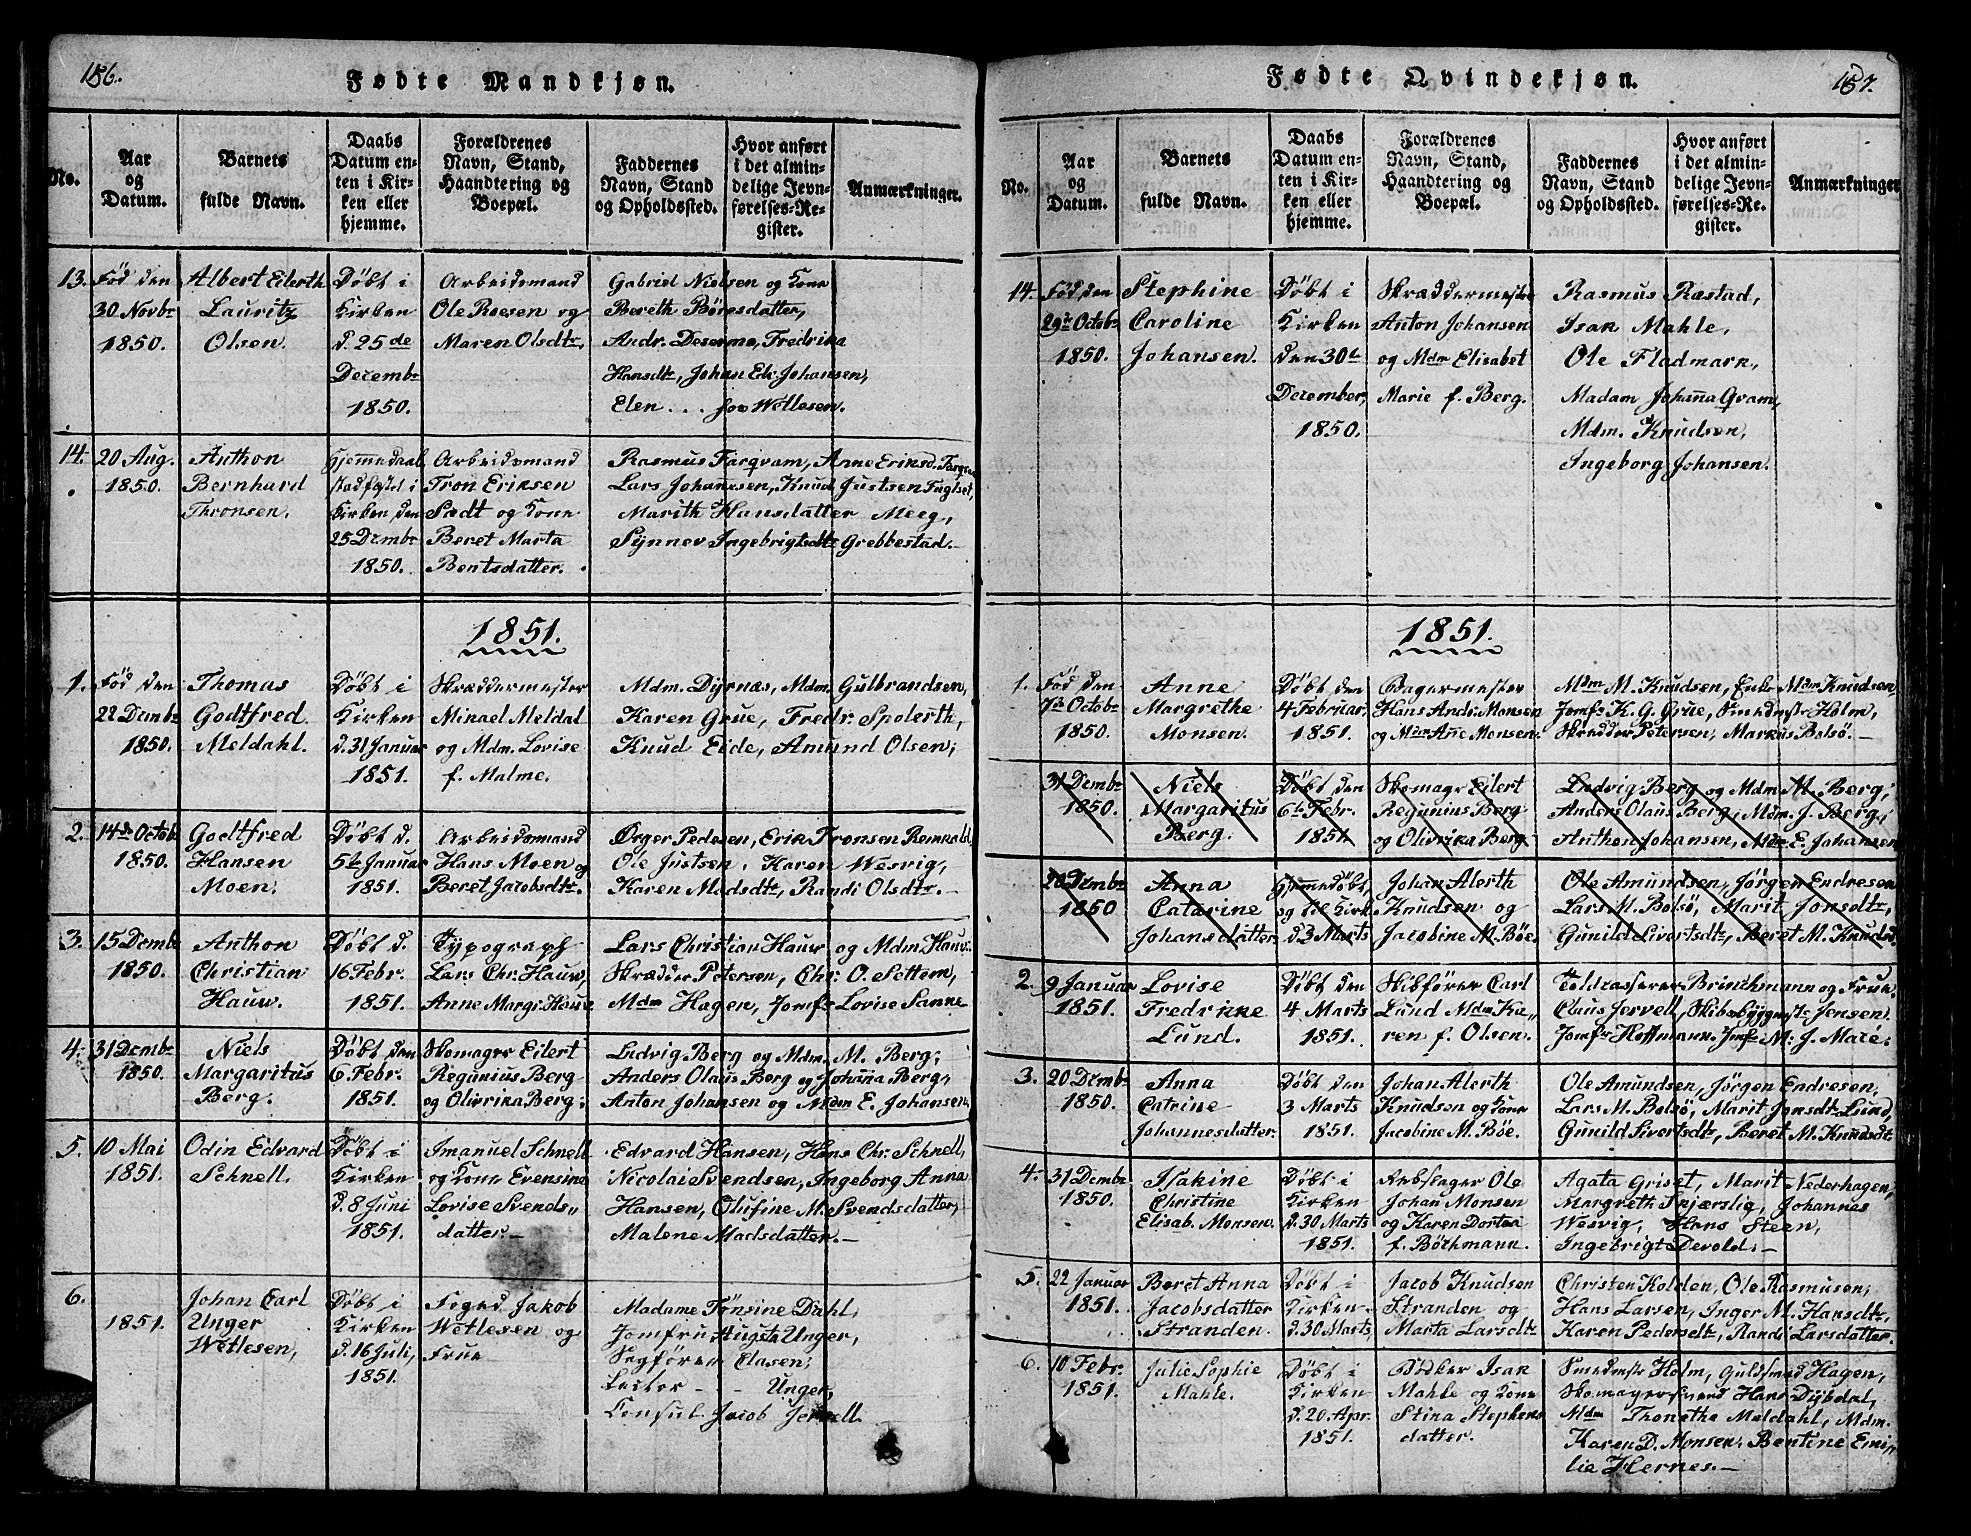 186.
Fødte Mandkjøn.
No.
Aar
og
Datum.
Barnets
fulde Navn.
Daabs
Datum en-
ten i Kir-
ken eller
hjemme.
Forældrenes
Navn, Stand,
Haandtering og
Boepæl.
Faddernes
Navn, Stand
og Opholdssted.
Hvor anført
i det almin-
delige Jevn-
førelses-Re-
gister.
Anmærkninger.
13.
Fød den
30 Novbr
1850.
Albert Eilerth
Lauritz
Olsen.
Døbt i
Kirken
d. 25de
Decembr
1850.
Arbeidsmand
Ole Roesen og
Maren Olsdtr.
Gabriel Nielsen og Kone
Bereth Børesdatter,
Andr. Deserme, Fredrika
Hansdtr, Johan Edv. Johansen,
Elen . . . hos Wetlesen.
14.
20 Aug.
1850.
Anthon
Bernhard
Thronsen.
Hjemmedaab
stadfæstet i
Kirken den
25 Dcmbr
1850.
Arbeidsmand
Tron Eriksen
Sædt og Kone
Beret Marta
Bentsdatter.
Rasmus Farqvam, Anne Eriksd.
Lars Johannesen, Knud Justsen Fuglset,
Marith Hansdatter Meeg,
Synnev Ingebrigtsdtr Grebbestad.
1851.
1.
Fød den
22 Dcmbr
1850.
Thomas
Godtfred
Meldahl.
Døbt i
Kirken
d. 31 Januar
1851.
Skræddermester
Minael Meldal
og Mdm. Lovise
f. Malme.
Mdm. Dyrnæs, Mdm. Gulbrandsen,
Karen Grue, Fredr. Spolerth,
Knud Eide, Amund Olsen,
2.
14de Octob
1850.
Godtfred
Hansen
Moen.
Døbt d.
5te Januar
1851.
Arbeidsmand
Hans Moen og
Beret Jacobsdtr.
Ørger Pedersen, Erik Tronsen
Ole Justsen, Karen Wesvig,
Karen Madsdtr, Randi Olsdtr.
3.
15 Decmb
1850.
Anthon
Christian
Hauw.
Døbt d.
16 Febr.
1851.
Typograph
Lars Chr. Hauw,
Anne Margr. Hauw
Lars Christian Hauw og Mdm. Hauw.
Skrædder Petersen, Chr. O. Settem,
Mdm Hagen, Jomfr Lovise Sanne
4.
31 Dcmbr
1850.
Niels
Margaritus
Berg.
Døbt den
6 Febr.
1851.
Skomager Eilert
Regunius Berg
og Olivrika Berg.
Ludvig Berg og Mdm. M. Berg,
Anders Olaus Berg og Johana Berg,
Anton Johansen og Mdm E. Johansen
5.
10 Mai
1851.
Odin Edvard
Schnell.
Døbt i
Kirken
d. 8 Juni
1851.
Imanuel Schnell
og Kone Evensine
Lovise Svends„
datter.
Edvard Hansen, Hans Chr. Schnell,
Nicolai Svendsen, Ingeborg Anna
Hansen, Olufine M. Svendsdatter,
Malene Madsdatter.
6.
1851.
Johan Carl
Unger
Wetlesen,
Døbt i
Kirken
d. 16 Juli,
1851.
Foged Jakob
Wetlesen og
Frue
Madame Tønsine Dahl,
Jomfru Augsta Unger,
Sagfører Clasen,
Lector - - Unger,
Consul Jacob Jervell.
187.
Fødte Qvindekjøn.
No.
Aar
og
Datum.
Barnets
fulde Navn.
Daabs
Datum en-
ten i Kir-
ken eller
hjemme.
Forældrenes
Navn, Stand,
Haandtering og
Boepæl.
Faddernes
Navn, Stand
og Opholdssted.
Hvor anført
i det almin-
delige Jevn-
førelses-Re-
gister.
Anmærkninger
14.
Fød den
29de Octob
1850.
Stephine
Caroline
Johansen.
Døbt i
Kirken
den 30te
December,
1850.
Skræddermester
Anton Johansen
og Mdm Elisabet
Marie f. Berg.
Rasmus Ræstad,
Isak Mahle,
Ole Fladmark,
Madam Johanna Qvam,
Mdm. Knudsen,
Ingeborg Johansen.
1851.
1.
Fød den
7de Octobr
1850.
Anne
Margrethe
Monsen.
Døbt den
4 Februar,
1851.
Bagermester
Hans Andr. Monsen
og Mdm Anne Monsen.
Mdm M. Knudsen, Enke Mdm Knudsen
Jomfr K. G. Grue, Smedmstr Holm,
Skrædder Petersen, Markus Bolsø.
31 Dcmbr
1850.
Niels
Margaritus
Berg.
Døbt den
6te Febr.
1851
Skomagr Eilert
Regunius Berg
og Olivrika Berg
Ludvig Berg og Mdm M. Berg,
Anders Olaus Berg, Mdm. J. Berg,
Anthon Johansen, Mdm E. Johansen
20 Dcmbr
1850
Anna
Catarine
Johansdatter
Hjemmedøbt,
og til Kirk
d. 3 Marts
Johan Alerth
Knudsen og
Jacobine M. Bøe.
Ole Amundsen, Jørgen Endresen
Lars M. Bolsø, Marit Jonsdtr,
Gunild Sivertsdtr, Beret M. Knudsd.
2.
9 Januar
1851.
Lovise
Fredrikke
Lund.
Døbt den
4 Marts
1851.
Skibfører Carl
Lund Mdm Ka„
ren f. Olsen.
Toldcasserer Brinchmann og Frue.
Claus Jervell, Skibsbyggmstr Jensen
Jomfr Hoffmann. Jomfr M. J. Macé.
3.
20 Dcmbr
1850.
Anna
Catrine
Johannesdatter.
Døbt den
3 Marts
1851.
Johan Alerth
Knudsen og Kone
Jacobine M. Bøe.
Ole Amundsen, Jørgen Endresen,
Lars M. Bolsø, Marit Jonsdtr Lund
Gunild Sivertsdtr, Beret M. Knudsdt.
4.
31 Dcmbr
1850.
Isakine
Christine
Elisab. Monsen.
Døbt i
Kirken
d. 30 Marts
1851.
Rebslager Ole
Johan Monsen
og Karen Dortea
f. Bøthmann.
Agata Griset, Marit Nederhagen,
Margreth Skjærslig, Johannes
Wesvig, Hans Steen,
Ingebrigt Devold.
5.
22 Januar
1851.
Beret Anna
Jacobsdatter
Stranden.
Døbt i
Kirken
d. 30 Marts,
1851.
Jacob Knudsen
Stranden og
Marta Larsdtr
Christen Kolden, Ole Rasmusen,
Hans Larsen, Inger M. Hansdtr,
Karen Pedersdtr, Randi Larsdatter.
6.
10 Febr.
1851.
Julie Sophie
Mahle.
Døbt i
Kirken
d. 20 Apr.
1851.
Bødker Isak
Mahle og Kone
Stina Stephens
datter.
Smedmstr Holm, Guldsmed Hagen,
Skomagersvend Hans Dybdal,
Mdm Thonethe Meldahl, Mdm.
Karen D. Monsen, Bentine Emi,
lie Hernes.